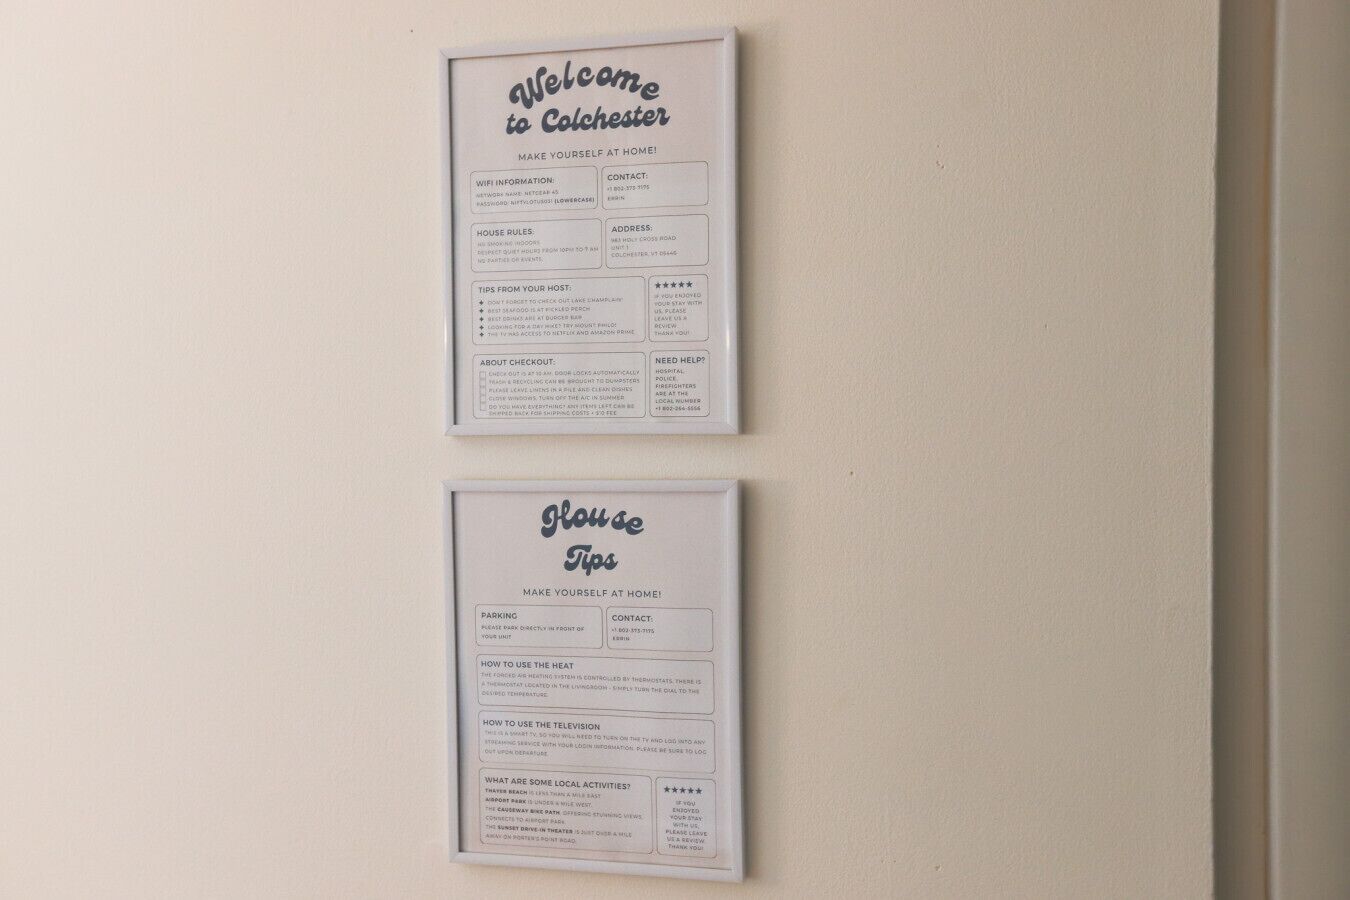 Welcome
to Colchester
MAKE YOURSELF AT HOME!
WIFI INFORMATION:
NETWORK NAME: NETGEAR 45
PASSWORD: NIFTYLOTUS031 (LOWERCASE)
CONTACT:
+1 802-373-7175
ERRIN
HOUSE RULES:
NO SMOKING INDOORS
RESPECT QUIET HOURS FROM 10PM TO 7 AM
NO PARTIES OR EVENTS.
ADDRESS:
983 HOLY CROSS ROAD
UNIT 1
COLCHESTER, VT 05446
TIPS FROM YOUR HOST:
DON'T FORGET TO CHECK OUT LAKE CHAMPLAIN!
BEST SEAFOOD IS AT PICKLED PERCH
BEST DRINKS ARE AT BURGER BAR
LOOKING FOR A DAY HIKE? TRY MOUNT PHILO!
THE TV HAS ACCESS TO NETFLIX AND AMAZON PRIME
★★★★★
IF YOU ENJOYED
YOUR STAY WITH
US, PLEASE
LEAVE US A
REVIEW
THANK YOU!
ABOUT CHECKOUT:
CHECK OUT IS AT 10 AM. DOOR LOCKS AUTOMATICALLY
TRASH & RECYCLING CAN BE BROUGHT TO DUMPSTERS
PLEASE LEAVE LINENS IN A PILE AND CLEAN DISHES
CLOSE WINDOWS, TURN OFF THE A/C IN SUMMER
DO YOU HAVE EVERYTHING? ANY ITEMS LEFT CAN BE
SHIPPED BACK FOR SHIPPING COSTS + $10 FEE
NEED HELP?
HOSPITAL,
POLICE,
FIREFIGHTERS
ARE AT THE
LOCAL NUMBER
+1 802-264-5556
House
Tips
MAKE YOURSELF AT HOME!
PARKING
PLEASE PARK DIRECTLY IN FRONT OF
YOUR UNIT
CONTACT:
+1 802-373-7175
ERRIN
HOW TO USE THE HEAT
THE FORCED AIR HEATING SYSTEM IS CONTROLLED BY THERMOSTATS. THERE IS
A THERMOSTAT LOCATED IN THE LIVINGROOM - SIMPLY TURN THE DIAL TO THE
DESIRED TEMPERATURE.
HOW TO USE THE TELEVISION
THIS IS A SMART TV, SO YOU WILL NEED TO TURN ON THE TV AND LOG INTO ANY
STREAMING SERVICE WITH YOUR LOGIN INFORMATION. PLEASE BE SURE TO LOG
OUT UPON DEPARTURE.
WHAT ARE SOME LOCAL ACTIVITIES?
THAYER BEACH IS LESS THAN A MILE EAST
AIRPORT PARK IS UNDER A MILE WEST.
THE CAUSEWAY BIKE PATH, OFFERING STUNNING VIEWS,
CONNECTS TO AIRPORT PARK
THE SUNSET DRIVE-IN THEATER IS JUST OVER A MILE
AWAY ON PORTER'S POINT ROAD.
★★★★★
IF YOU
ENJOYED
YOUR STAY
WITH US,
PLEASE LEAVE
US A REVIEW.
THANK YOU!